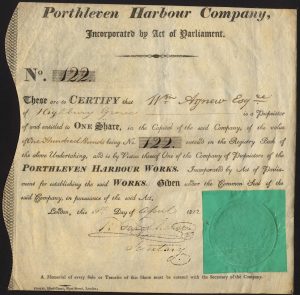 Porthleven Harbour Company,
Incorporated by Act of Parliament.
No. 122
These are to CERTIFY that Wm Agnew Esqre
of Highbury Grove is a Proprietor
of and entitled to ONE Share, in the Capital of the said Company, of the value
of One Hundred Pounds being No. 122 entered in the Registry Book of
the above Undertaking, and is by Virtue thereof One of the Company of Proprietors of the
PORTHLEVEN HARBOUR WORKS. Incorporated by Act of Parliament
for establishing the said WORKS. Given under the Common Seal of the
said Company, in pursuance of the said Act,
London, this Day of April 1812
Secretary
A Memorial of every Sale or Transfer of this Share must be entered with the Secretary of the Company.